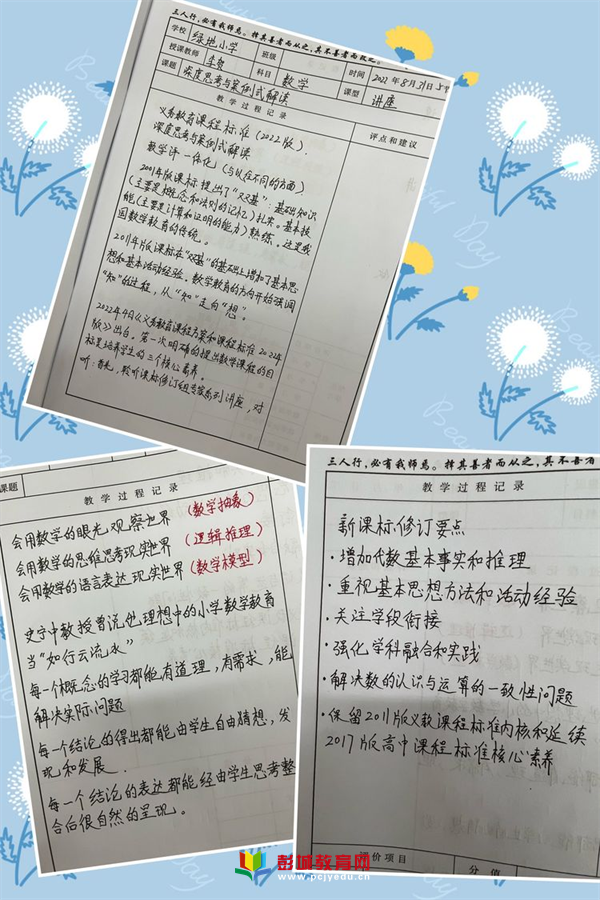 三人行,必有我师焉。择其善者而从之,其不善者而改之。
学校 绿地小学 班级 时间 2022年8月31日
授课教师 李贺 科目 数学 课型 讲座
课题 深度思考与案例式解读
教学过程记录 评点和建议
义务教育课程标准(2022版).
深度思考与案例式解读
教学评一体化(与以往不同的方面)
2001年版课标提出了“双基”:基础知识
(主要是概念和法则的记忆)扎实。基本技
能(主要是计算和证明的能力)熟练。这是我
国数学教育的传统。
2011年版课标在“双基”的基础上增加了基本思
想和基本活动经验。数学教育的方向开始强调
“知”的过程,从“知”走向“想”。
2022年4月《义务教育课程方案和课程标准2022年
版》出台。第一次明确的提出数学课程的目
标是培养学生的三个核心素养。
听:首先,聆听课标修订组专家系列讲座,对
课题
教学过程记录
会用数学的眼光观察世界 (数学抽象)
会用数学的思维思考现实世界 (逻辑推理)
会用数学的语言表达现实世界 (数学模型)
史宁中教授曾说他理想中的小学数学教育
当“如行云流水”
每一个概念的学习都能有道理,有需求,能
解决实际问题
每一个结论的得出都能由学生自由猜想,发
现和发展.
每一个结论的表达都能经由学生思考整
合后很自然的呈现。
三人行,必有我师焉。择其善者而从之,其不善者
教学过程记录
新课标修订要点
·增加代数基本事实和推理
·重视基本思想方法和活动经验
·关注学段衔接
·强化学科融合和实践
·解决数的认识与运算的一致性问题
·保留2011版义教课程标准内核和延续
2017版高中课程标准核心素养
评价项目 分值
Beautiful Day
彭城教育网
www.pcjyedu.cn